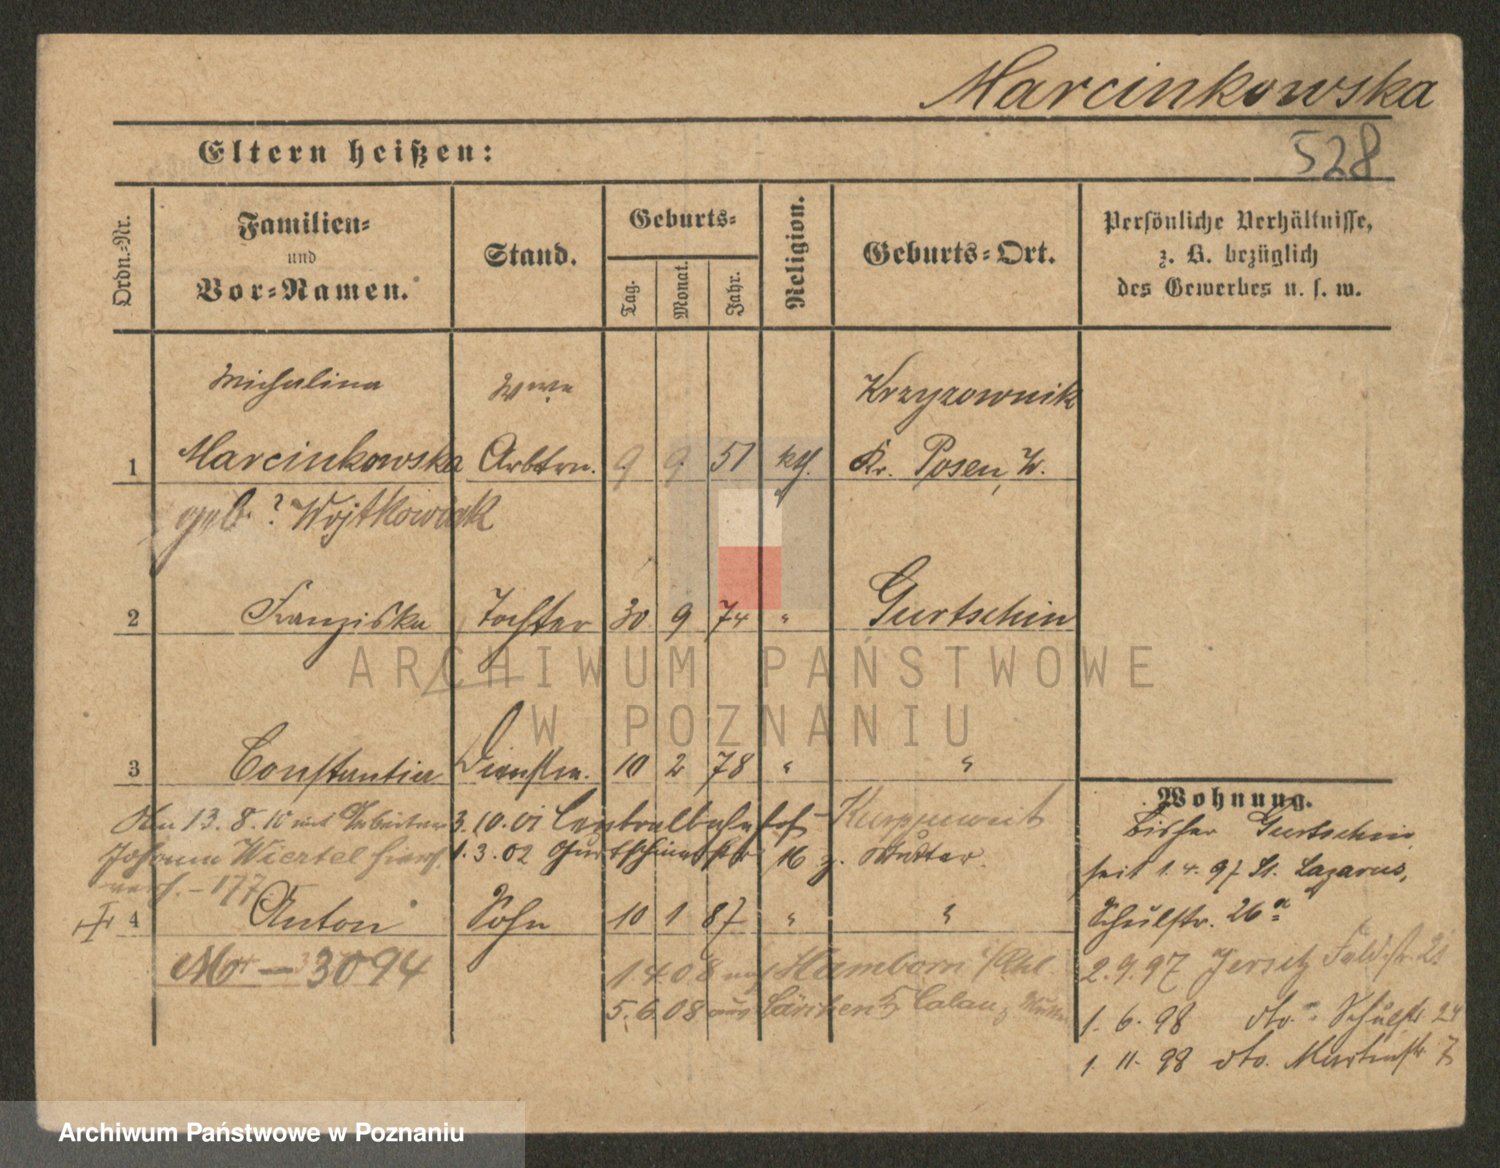 Marcinkowska
528
Eltern heißen:
Ordn.-Nr.
Familien-
und
Vor-Namen.
Stand.
Geburts-
Tag.
Monat.
Jahr.
Religion.
Geburts-Ort.
Persönliche Verhältnisse,
z. B. bezüglich
des Gewerbes u. s. w.
Michalina Wwe Krzyzownik
1 Marcinkowska Arbtrn. 9 9 51 kth. Kr. Posen, W.
geb. ? Wojtkowiak
2 Franziska Tochter 30 9 74 " Gurtschin
ARCHIWUM PAŃSTWOWE
W POZNANIU
3 Constantia Dienstm. 10 2 78 " "
13. 8. 10 mit Arbeiter 3.10.01 Centralbahnhof
Johann Wiertel 1.3.02 Gurtschinerstr. 16 z. Mutter.
verh. - 177.
4 Anton Sohn 10 1 87 " "
Mr - 3094
1 4 08 auf Hamborn
5. 6. 08 aus Calau z. Mutter
Wohnung.
bisher Gurtschin,
seit 1. 4. 97 St. Lazarus,
Schulstr. 26a
2. 9. 97 Jersitz Feldstr. 21
1. 6. 98 dto. Schulstr. 24
1. 11. 98 dto. Martinstr. 7
Archiwum Państwowe w Poznaniu